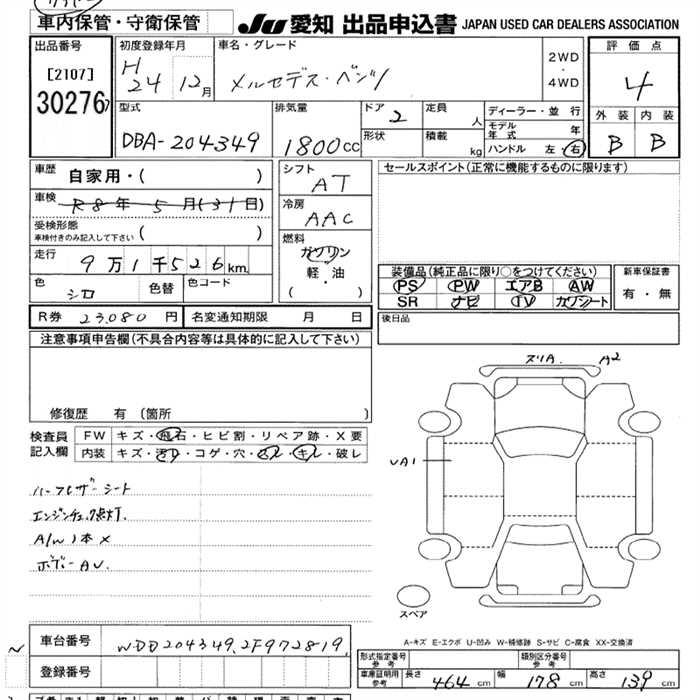 車内保管・守衛保管
JU 愛知 出品申込書 JAPAN USED CAR DEALERS ASSOCIATION
出品番号
[2107]
30276
初度登録年月
H 24 12月
車名・グレード
メルセデス・ベンツ
2WD
・
4WD
評価点
4
外装 内装
B B
型式
DBA-204349
排気量
1800cc
ドア 2
形状
定員 人
積載 kg
ディーラー・並行
モデル年式 年
ハンドル 左・右
車歴 自家用・( )
車検 R8年5月(31日)
受検形態
車検付きのみ記入して下さい ( )
走行 9万1千526km
色 シロ
色替
色コード
シフト
AT
冷房
AAC
燃料
ガソリン
軽・油
( )
セールスポイント(正常に機能するものに限ります)
装備品(純正品に限り○をつけてください)
PS PW エアB AW
SR ナビ TV カワシート
新車保証書
有・無
後日品
R券 23,080円
名変通知期限 月 日
注意事項申告欄(不具合内容等は具体的に記入して下さい)
修復歴 有 (箇所 )
検査員記入欄
FW キズ・飛石・ヒビ割・リペア跡・X要
内装 キズ・汚れ・コゲ・穴・スレ・キレ・破レ
ハーフレザーシート
エンジンチェック点灯.
A/W 1本 X
ボデーAU.
スリA. A2
UA1
スペア
A-キズ E-エクボ U-凹み W-補修跡 S-サビ C-腐食 XX-交換済
車台番号 WDD204349.2F972819.
登録番号
形式指定番号
参考
類別区分番号
参考
車庫証明用
参考
長さ 464cm
幅 178cm
高さ 139cm